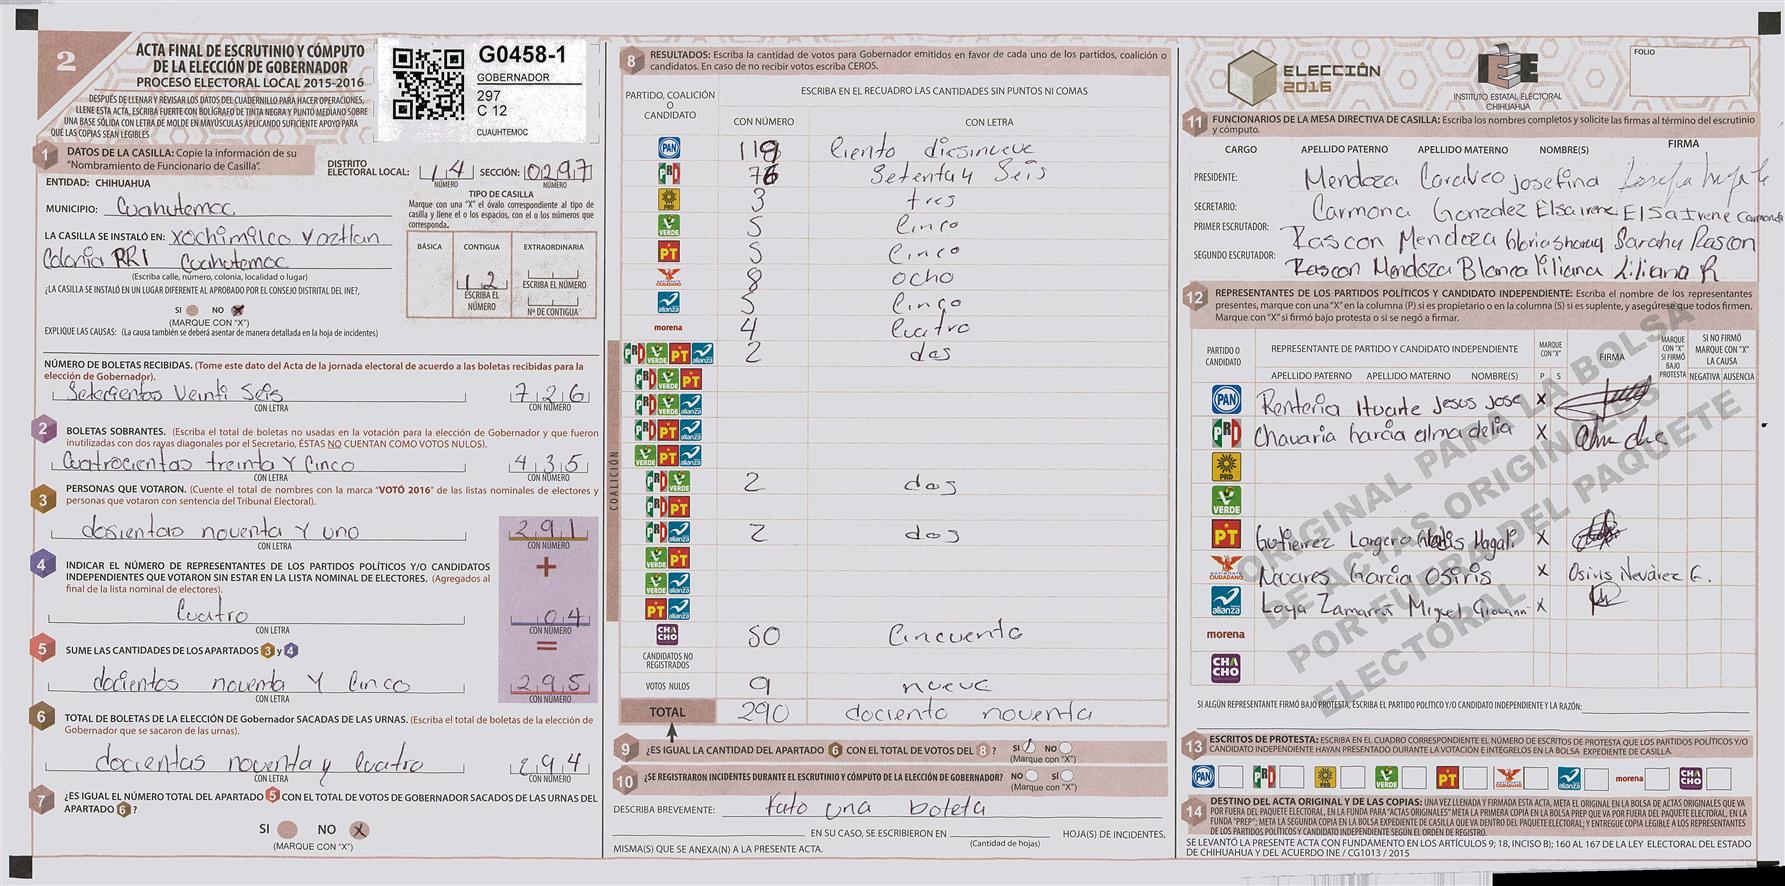 2
ACTA FINAL DE ESCRUTINIO Y CÓMPUTO
DE LA ELECCIÓN DE GOBERNADOR
PROCESO ELECTORAL LOCAL 2015-2016
DESPUÉS DE LLENAR Y REVISAR LOS DATOS DEL CUADERNILLO PARA HACER OPERACIONES,
LLENE ESTA ACTA, ESCRIBA FUERTE CON BOLÍGRAFO DE TINTA NEGRA Y PUNTO MEDIANO SOBRE
UNA BASE SÓLIDA CON LETRA DE MOLDE EN MAYÚSCULAS APLICANDO SUFICIENTE APOYO PARA
QUE LAS COPIAS SEAN LEGIBLES
G0458-1
GOBERNADOR
297
C 12
CUAUHTEMOC
1 DATOS DE LA CASILLA: Copie la información de su
"Nombramiento de Funcionario de Casilla".
DISTRITO ELECTORAL LOCAL: 14 SECCIÓN: 0297
NÚMERO NÚMERO
ENTIDAD: CHIHUAHUA
MUNICIPIO: Cuahutemoc
LA CASILLA SE INSTALÓ EN: Xochimilco y aztlan
Colonia PRI Cuahutemoc
(Escriba calle, número, colonia, localidad o lugar)
¿LA CASILLA SE INSTALÓ EN UN LUGAR DIFERENTE AL APROBADO POR EL CONSEJO DISTRITAL DEL INE?,
SI NO X
(MARQUE CON "X")
EXPLIQUE LAS CAUSAS: (La causa también se deberá asentar de manera detallada en la hoja de incidentes)
TIPO DE CASILLA
Marque con una "X" el óvalo correspondiente al tipo de
casilla y llene el o los espacios, con el o los números que
corresponda.
BÁSICA CONTIGUA EXTRAORDINARIA
12
ESCRIBA EL NÚMERO
ESCRIBA EL NÚMERO
Nº DE CONTIGUA
NÚMERO DE BOLETAS RECIBIDAS. (Tome este dato del Acta de la jornada electoral de acuerdo a las boletas recibidas para la
elección de Gobernador).
Setecientos Veinti Seis 726
CON LETRA CON NÚMERO
2 BOLETAS SOBRANTES. (Escriba el total de boletas no usadas en la votación para la elección de Gobernador y que fueron
inutilizadas con dos rayas diagonales por el Secretario, ÉSTAS NO CUENTAN COMO VOTOS NULOS).
Cuatrocientas treinta y Cinco 435
CON LETRA CON NÚMERO
3 PERSONAS QUE VOTARON. (Cuente el total de nombres con la marca "VOTÓ 2016" de las listas nominales de electores y
personas que votaron con sentencia del Tribunal Electoral).
dosientao noventa y uno 291
CON LETRA CON NÚMERO
+
4 INDICAR EL NÚMERO DE REPRESENTANTES DE LOS PARTIDOS POLÍTICOS Y/O CANDIDATOS
INDEPENDIENTES QUE VOTARON SIN ESTAR EN LA LISTA NOMINAL DE ELECTORES. (Agregados al
final de la lista nominal de electores).
Cuatro 04
CON LETRA CON NÚMERO
=
5 SUME LAS CANTIDADES DE LOS APARTADOS 3 y 4
docientos noventa y Cinco 295
CON LETRA CON NÚMERO
6 TOTAL DE BOLETAS DE LA ELECCIÓN DE Gobernador SACADAS DE LAS URNAS. (Escriba el total de boletas de la elección de
Gobernador que se sacaron de las urnas).
docientas noventa y Cuatro 294
CON LETRA CON NÚMERO
7 ¿ES IGUAL EL NÚMERO TOTAL DEL APARTADO 5 CON EL TOTAL DE VOTOS DE GOBERNADOR SACADOS DE LAS URNAS DEL
APARTADO 6?
SI NO X
(MARQUE CON "X")
8 RESULTADOS: Escriba la cantidad de votos para Gobernador emitidos en favor de cada uno de los partidos, coalición o
candidatos. En caso de no recibir votos escriba CEROS.
PARTIDO, COALICIÓN O CANDIDATO
ESCRIBA EN EL RECUADRO LAS CANTIDADES SIN PUNTOS NI COMAS
CON NÚMERO CON LETRA
PAN 119 Ciento diesinueve
PRD 76 Setenta y Seis
PRD 3 tres
VERDE 5 Cinco
PT 5 Cinco
MOVIMIENTO CIUDADANO 8 ocho
alianza 5 Cinco
morena 4 Cuatro
COALICIÓN
PRD VERDE PT alianza 2 dos
PRD VERDE PT
PRD VERDE alianza
PRD PT alianza
VERDE PT alianza
PRD VERDE 2 dos
PRD PT
PRD alianza 2 dos
VERDE PT
VERDE alianza
PT alianza
CHACHO 50 Cincuenta
CANDIDATOS NO REGISTRADOS
VOTOS NULOS 9 nueve
TOTAL 290 dociento noventa
9 ¿ES IGUAL LA CANTIDAD DEL APARTADO 6 CON EL TOTAL DE VOTOS DEL 8? SI NO
(Marque con "X")
10 ¿SE REGISTRARON INCIDENTES DURANTE EL ESCRUTINIO Y CÓMPUTO DE LA ELECCIÓN DE GOBERNADOR? NO SÍ
(Marque con "X")
DESCRIBA BREVEMENTE: Falto una boleta
EN SU CASO, SE ESCRIBIERON EN HOJA(S) DE INCIDENTES,
(Cantidad de hojas)
MISMA(S) QUE SE ANEXA(N) A LA PRESENTE ACTA.
ELECCIÓN 2016
IEE
INSTITUTO ESTATAL ELECTORAL
CHIHUAHUA
FOLIO
11 FUNCIONARIOS DE LA MESA DIRECTIVA DE CASILLA: Escriba los nombres completos y solicite las firmas al término del escrutinio
y cómputo.
CARGO APELLIDO PATERNO APELLIDO MATERNO NOMBRE(S) FIRMA
PRESIDENTE: Mendoza Caraveo Josefina
SECRETARIO: Carmona Gonzalez Elsa irene Elsa Irene Carmona
PRIMER ESCRUTADOR: Rascon Mendoza Gloria Sarahy Sarahy Rascon
SEGUNDO ESCRUTADOR: Rascon Mendoza Blanca liliana Liliana R
12 REPRESENTANTES DE LOS PARTIDOS POLÍTICOS Y CANDIDATO INDEPENDIENTE: Escriba el nombre de los representantes
presentes, marque con una "X" en la columna (P) si es propietario o en la columna (S) si es suplente, y asegúrese que todos firmen.
Marque con "X" si firmó bajo protesta o si se negó a firmar.
PARTIDO O CANDIDATO REPRESENTANTE DE PARTIDO Y CANDIDATO INDEPENDIENTE MARQUE CON "X" FIRMA MARQUE CON "X" SI FIRMÓ BAJO PROTESTA SI NO FIRMÓ MARQUE CON "X" LA CAUSA
APELLIDO PATERNO APELLIDO MATERNO NOMBRE(S) P S NEGATIVA AUSENCIA
PAN Renteria Huarte Jesus Jose X
PRD Chavaria Garcia alma delia X
PRD
VERDE
PT Gutierrez Magali X
MOVIMIENTO CIUDADANO Navares Garcia Osiris X Osiris Nevárez G.
alianza Loya Zamarron Miguel Giovann X
morena
CHACHO
ORIGINAL PARA LA BOLSA
DE ACTAS ORIGINALES
POR FUERA DEL PAQUETE
ELECTORAL
SI ALGÚN REPRESENTANTE FIRMÓ BAJO PROTESTA, ESCRIBA EL PARTIDO POLÍTICO Y/O CANDIDATO INDEPENDIENTE Y LA RAZÓN:
13 ESCRITOS DE PROTESTA: ESCRIBA EN EL CUADRO CORRESPONDIENTE EL NÚMERO DE ESCRITOS DE PROTESTA QUE LOS PARTIDOS POLÍTICOS Y/O
CANDIDATO INDEPENDIENTE HAYAN PRESENTADO DURANTE LA VOTACIÓN E INTÉGRELOS EN LA BOLSA EXPEDIENTE DE CASILLA.
PAN PRD PRD VERDE PT MOVIMIENTO CIUDADANO alianza morena CHACHO
14 DESTINO DEL ACTA ORIGINAL Y DE LAS COPIAS: UNA VEZ LLENADA Y FIRMADA ESTA ACTA, META EL ORIGINAL EN LA BOLSA DE ACTAS ORIGINALES QUE VA
POR FUERA DEL PAQUETE ELECTORAL, EN LA FUNDA PARA "ACTAS ORIGINALES" META LA PRIMERA COPIA EN LA BOLSA PREP QUE VA POR FUERA DEL PAQUETE ELECTORAL, EN LA
FUNDA "PREP"; META LA SEGUNDA COPIA EN LA BOLSA EXPEDIENTE DE CASILLA QUE VA DENTRO DEL PAQUETE ELECTORAL; Y ENTREGUE COPIA LEGIBLE A LOS REPRESENTANTES
DE LOS PARTIDOS POLÍTICOS Y CANDIDATO INDEPENDIENTE SEGÚN EL ORDEN DE REGISTRO.
SE LEVANTÓ LA PRESENTE ACTA CON FUNDAMENTO EN LOS ARTÍCULOS 9; 18, INCISO B); 160 AL 167 DE LA LEY ELECTORAL DEL ESTADO
DE CHIHUAHUA Y DEL ACUERDO INE / CG1013 / 2015